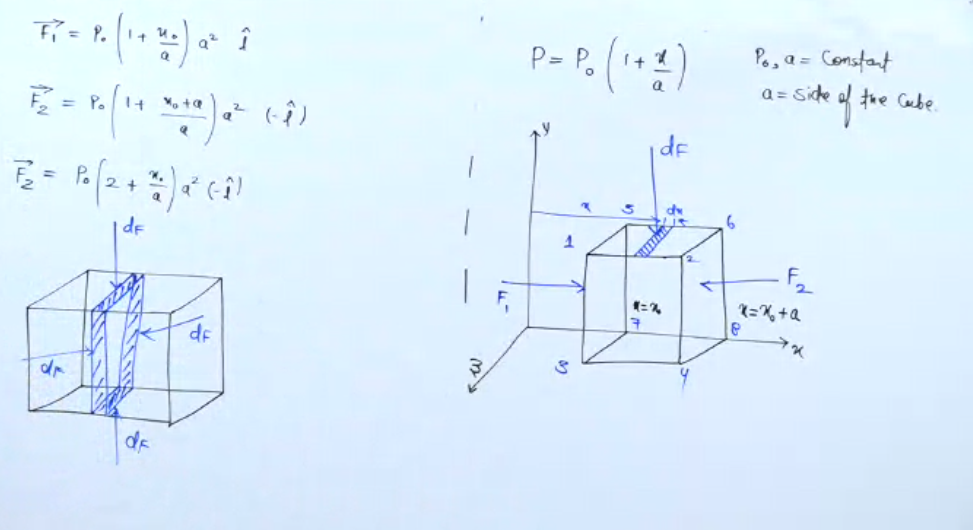 F₁⃗ = P₀ (1 + x₀/a) a² î
F₂⃗ = P₀ (1 + (x₀+a)/a) a² (-î)
F₂⃗ = P₀ (2 + x₀/a) a² (-î)
dF
dF
dF
dF
P = P₀ (1 + x/a)
P₀, a = Constant
a = side of the Cube.
y
dF
x
5
dx
6
1
2
F₁
F₂
x=x₀
7
x=x₀+a
8
x
3
4
z